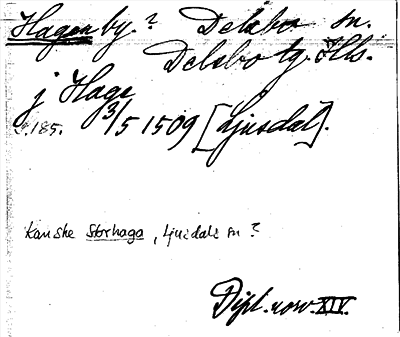 Hagen by? Delsbo sn.
Delsbo tg. Hls.
j Hage
s. 185. 3/5 1509 [Ljusdal].
Kanske Storhaga, Ljusdals sn?
Dipl. norv. XIV.